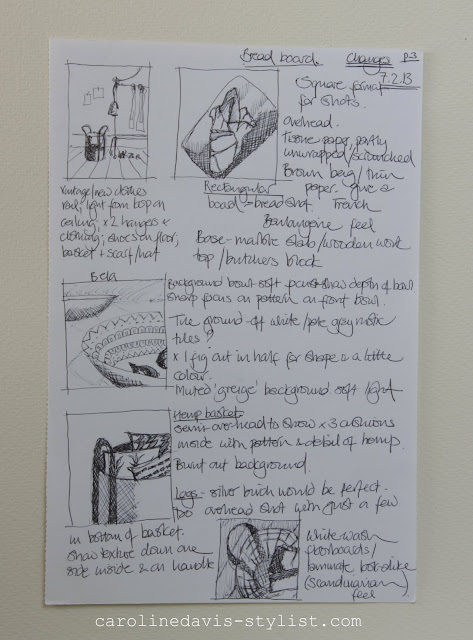 Bread board.
Changes p.3
7.2.13
Square format
for shots.
overhead.
Tissue paper, partly
unwrapped/scrunched
Brown bag/thin
paper. give a
French
Boulangerie feel
Rectangular
board = bread shot.
Base - marble slab/wooden work
top/butchers block
Vintage/new clothes
rail; light from top on
ceiling; x 2 hangers &
clothing; shoes on floor;
basket + scarf/hat
Background bowl soft focus show depth of bowl
sharp focus on pattern on front bowl.
The ground - off white/pale grey rustic
tiles?
x 1 fig cut in half for shape & a little
colour.
Muted 'greige' background soft light
Hemp basket
semi-overhead to show x 3 cushions
inside with pattern & detail of hemp.
Burnt out background.
Logs - silver birch would be perfect.
Do overhead shot with just a few
in bottom of basket.
show texture down one
side inside & on handle
White wash
floorboards/
laminate look-like
(scandinavian)
feel
carolinedavis-stylist.com